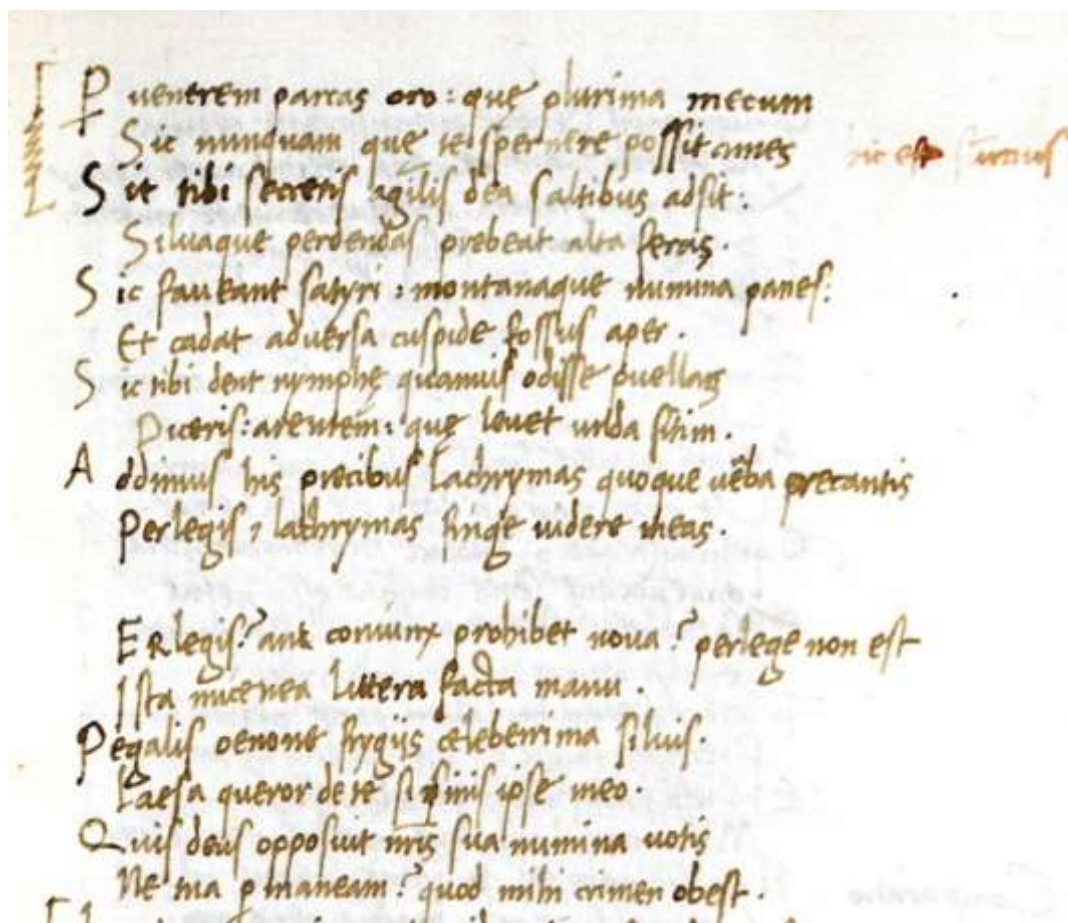 P uenterem parcas oro : quę plurima mecum
Sic nunquam que te spernere possit ames
hic est
Sit tibi secretis agilis dea saltibus adsit :
Siluaque perdendas prebeat alta feras .
Sic faueant satyri : montanaque numina panes :
Et cadat aduersa cuspide fossus aper .
Sic tibi dent nymphę quamuis odisse puellas
Diceris : arentem : quę leuet unda sitim .
Addimus his precibus lachrymas quoque uerba precantis
Perlegis , lachrymas finge uidere meas .
ERlegis ? ant coniunx prohibet noua ? perlege non est
Ista micenea littera facta manu .
Pegasis oenone frygiis celeberrima siluis .
Laesa queror de te si sinis ipse meo .
Quis deus opposuit nris sua numina uotis
Ne tua p maneam ? quod mihi crimen obest .